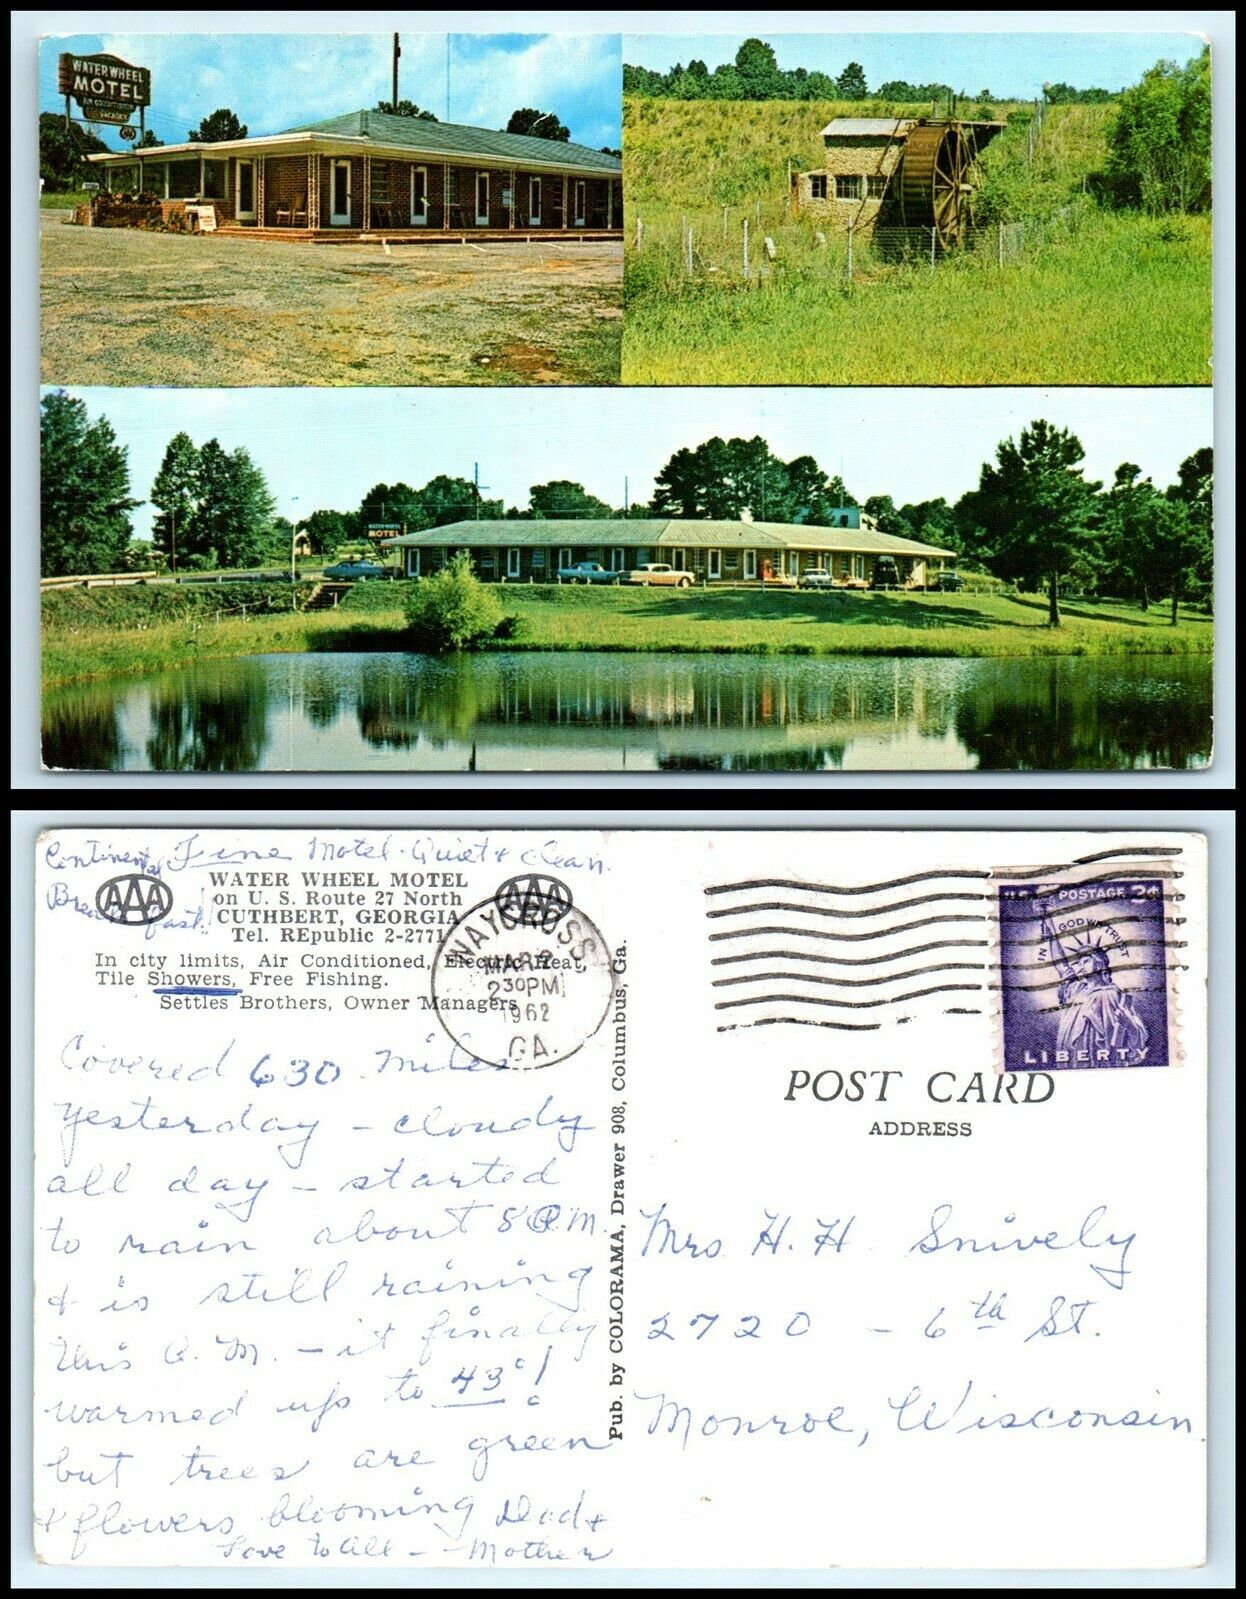 WATER WHEEL
MOTEL
AIR CONDITIONED
VACANCY
WATER WHEEL
MOTEL
Continental Fine Motel - Quiet & clean.
Breakfast!
AAA
WATER WHEEL MOTEL
on U. S. Route 27 North
CUTHBERT, GEORGIA
Tel. REpublic 2-2771
AAA
In city limits, Air Conditioned, Electric Heat,
Tile Showers, Free Fishing.
Settles Brothers, Owner Managers
WAYCROSS
MAR 2
2 30 PM
1962
GA.
Covered 630 miles
yesterday - cloudy
all day - started
to rain about 8 P.M.
& is still raining
this A.M. - it finally
warmed up to 43°!
but trees are green
& flowers blooming Dad &
Love to all - Mother
Pub. by COLORAMA, Drawer 908, Columbus, Ga.
U.S. POSTAGE 3¢
IN GOD WE TRUST
LIBERTY
POST CARD
ADDRESS
Mrs H. H. Snively
2720 - 6th St.
Monroe, Wisconsin